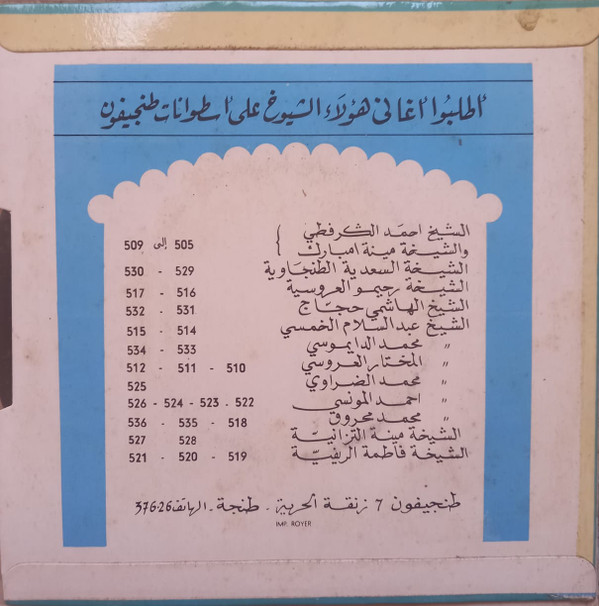 اطلبوا أغاني هؤلاء الشيوخ على أسطوانات طنجيفون
الشيخ احمد الكرفطي
والشيخة مينة امبارك } 505 إلى 509
الشيخة السعدية الطنجاوية 529 - 530
الشيخة رحيمو العروسية 516 - 517
الشيخ الهاشمي حجاج 531 - 532
الشيخ عبد السلام الخمسي 514 - 515
" محمد الدايموسي 533 - 534
" المختار العروسي 510 - 511 - 512
" محمد الضراوي 525
" احمد المونسي 522 - 523 - 524 - 526
" محمد محروق 518 - 535 - 536
الشيخة مينة التزانيّة 528 527
الشيخة فاطمة الريفيّة 519 - 520 - 521
طنجيفون 7 زنقة الحرية - طنجة - الهاتف 376.26
IMP. ROYER